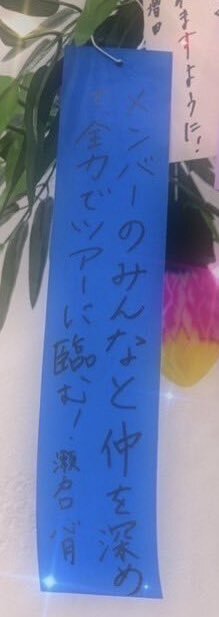 ますように！
増田
メンバーのみんなと仲を深め
て全力でツアーに臨む！瀬名